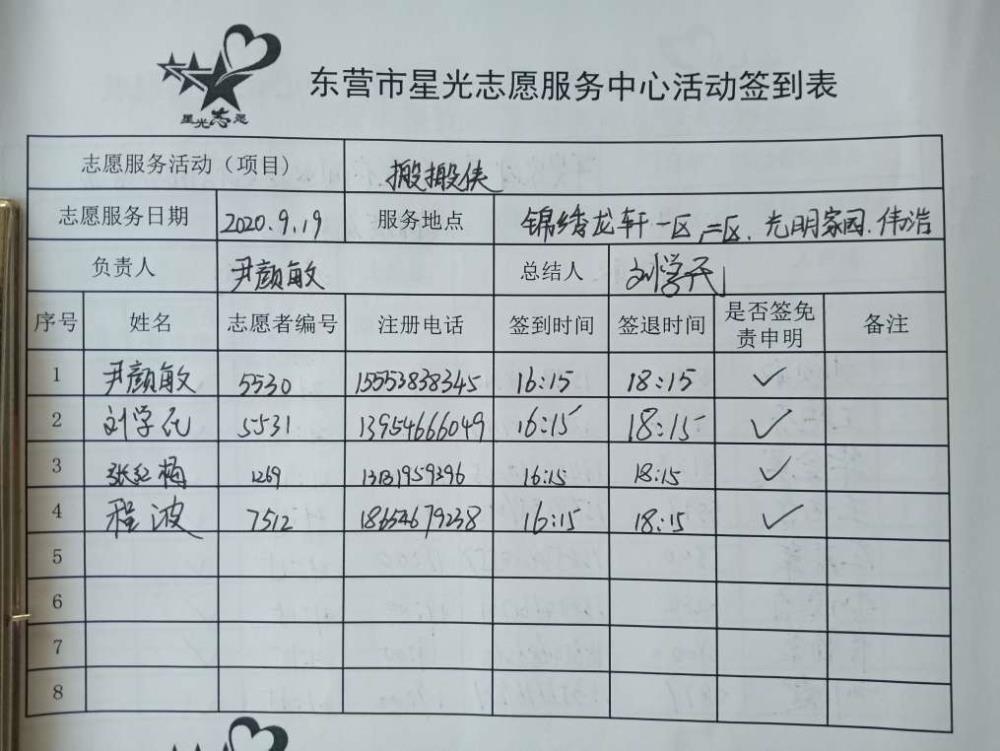 东营市星光志愿服务中心活动签到表
星光志愿
志愿服务活动（项目） 搬搬侠
志愿服务日期 2020.9.19 服务地点 锦绣龙轩一区二区、光明家园、伟浩
负责人 尹颜敏 总结人 刘学兵
序号 姓名 志愿者编号 注册电话 签到时间 签退时间 是否签免责申明 备注
1 尹颜敏 5530 15553838345 16:15 18:15 ✓
2 刘学 5531 13954666049 16:15 18:15 ✓
3 张红梅 1269 16:15 18:15 ✓
4 程波 7512 18654679238 16:15 18:15 ✓
5
6
7
8